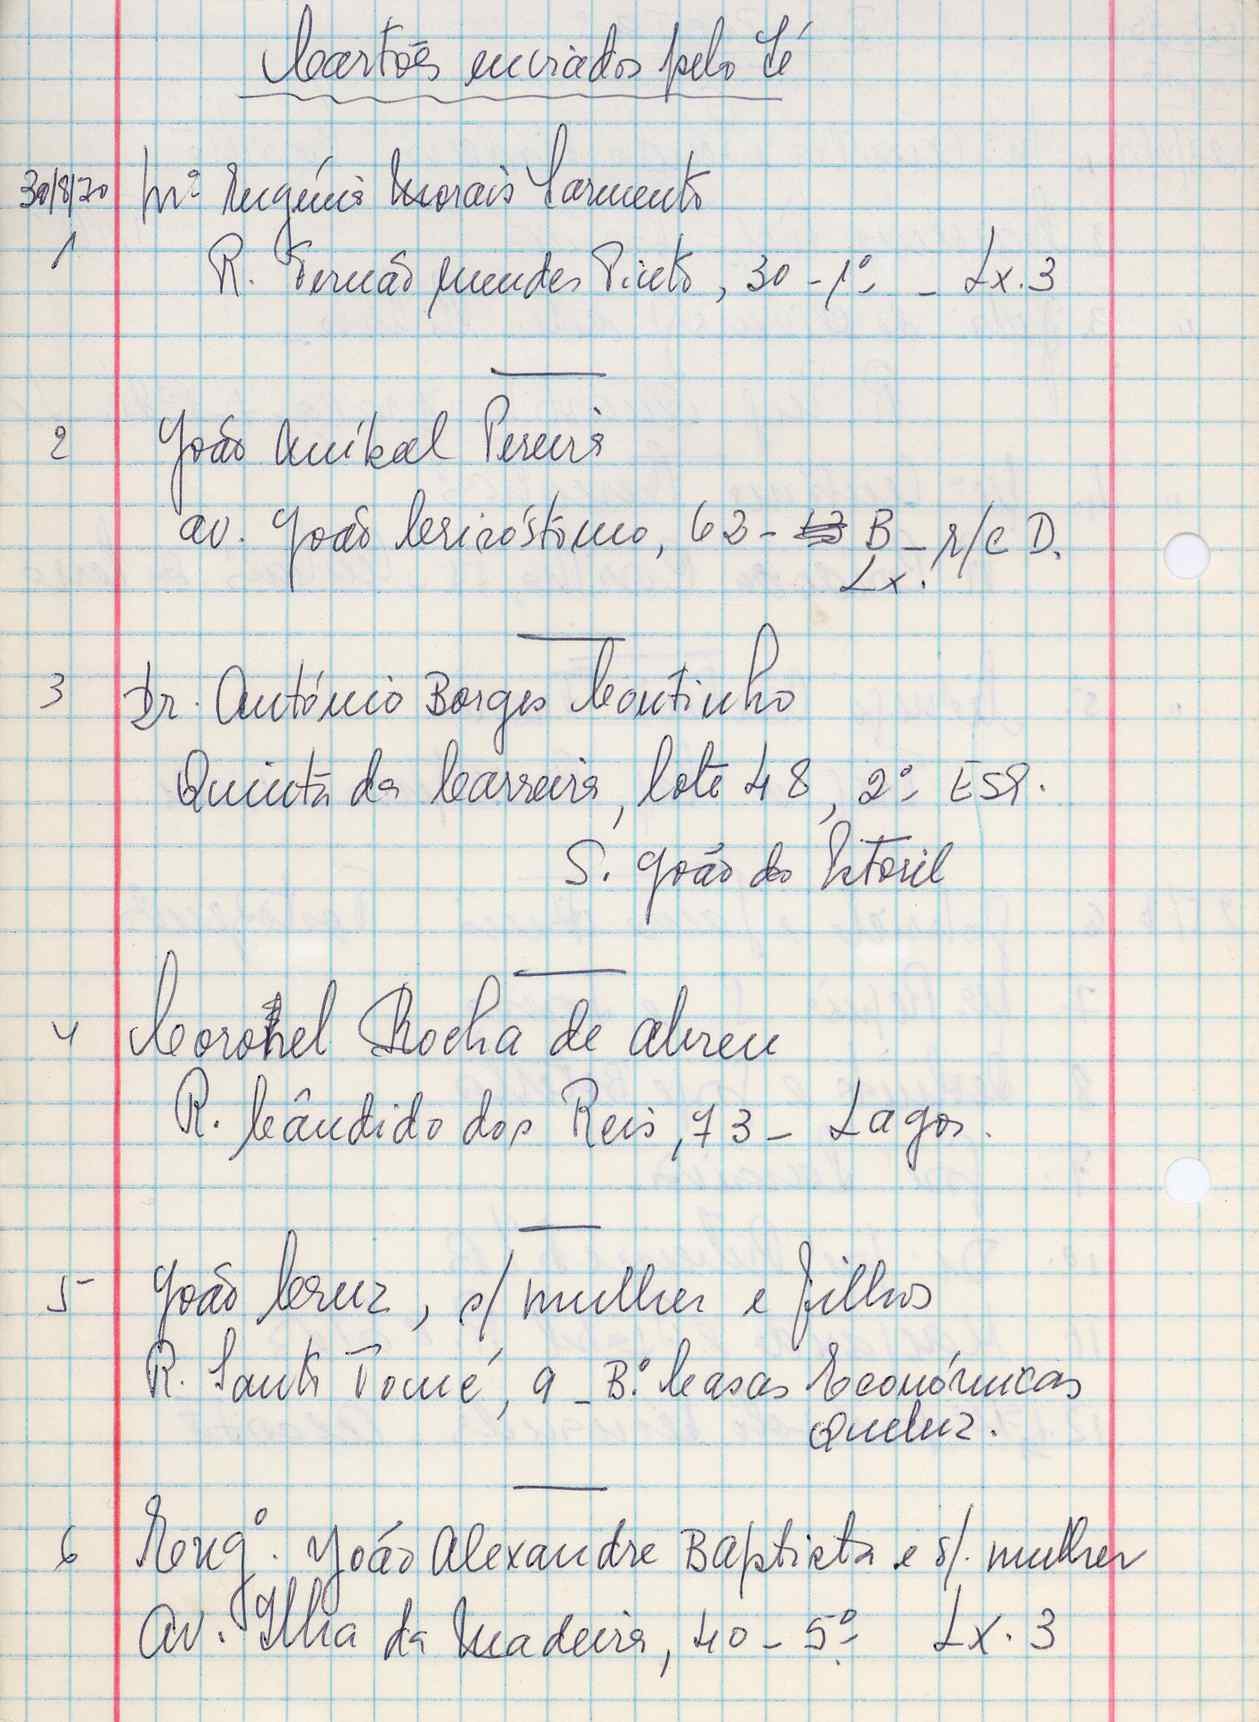 Cartões enviados pelo Zé
30/8/70 Mª Eugénia Morais Sarmento
1 R. Fernão Mendes Pinto, 30-1º - Lx. 3
2 João Aníbal Pereira
Av. João Crisóstomo, 62- B - r/c D.
Lx.
3 Dr. António Borges Coutinho
Quinta da Carreira, lote 48, 2º ESQ.
S. João do Estoril
4 Coronel Rocha de Abreu
R. Cândido dos Reis, 73 - Lagos.
5 João Cruz, s/ mulher e filhos
R. Santa Tomé, 9 - B.º Casas Económicas
Queluz.
6 Engº. João Alexandre Baptista e s/. mulher
Av. Ilha da Madeira, 40 - 5º Lx. 3